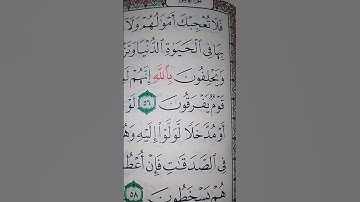 فَلَا تُعْجِبْكَ أَمْوَٰلُهُمْ وَلَآ
بِهَا فِى ٱلْحَيَوٰةِ ٱلدُّنْيَا وَتَزْ
وَيَحْلِفُونَ بِٱللَّهِ إِنَّهُمْ لَ
قَوْمٌ يَفْرَقُونَ ٥٦ لَوْ
أَوْ مُدَّخَلًا لَّوَلَّوْا۟ إِلَيْهِ وَهُ
فِى ٱلصَّدَقَٰتِ فَإِنْ أُعْطُ
هُمْ يَسْخَطُونَ ٥٨